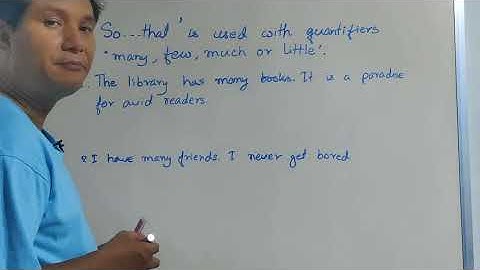 So...that' is used with quantifiers
"many, few, much or little'.
The library has many books. It is a paradise
for avid readers.
2 I have many friends. I never get bored